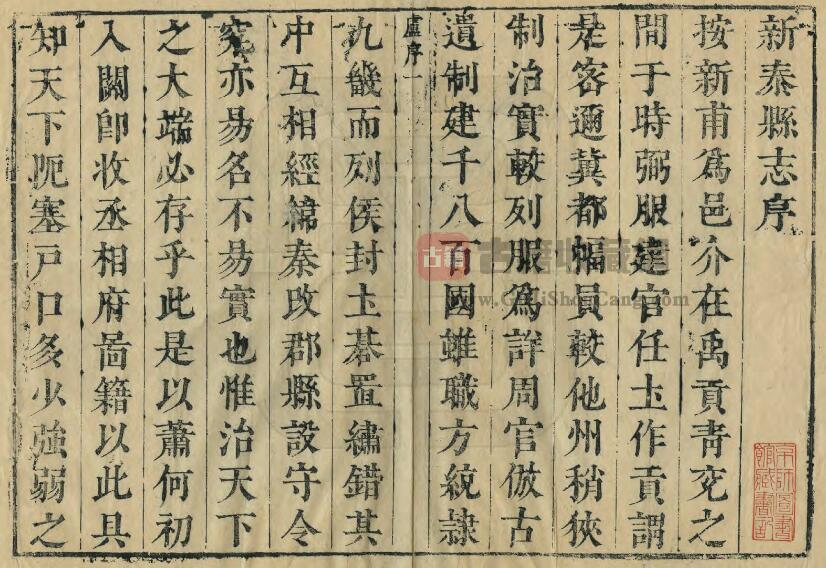 新泰縣志序
按新甫爲邑介在禹貢青兖之
間于時弼服建官任土作貢謂
是密邇冀都幅員較他州稍狹
制治實較列服爲詳周官倣古
遺制建千八百國雖職方統隷
盧序一
九畿而列侯封土碁置繡錯其
中互相經緯秦攺郡縣設守令
究亦易名不易實也惟治天下
之大端必存乎此是以蕭何初
入關卽收丞相府啚籍以此具
知天下阨塞戸口多少強弱之
古籍
古籍收藏
www.GuJiShouCang.com